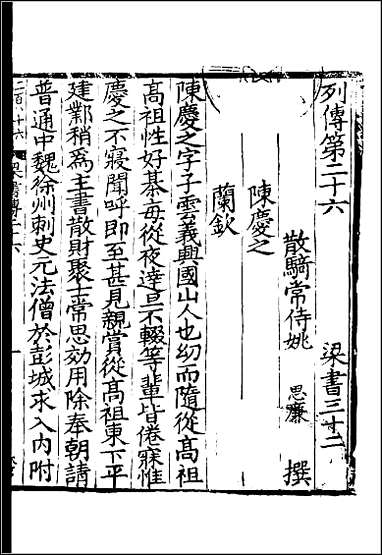 列傳第二十六 梁書三十二
散騎常侍姚 思廉 撰
陳慶之
蘭欽
陳慶之字子雲義興國山人也幼而隨從髙祖
髙祖性好棊每從夜達旦不輟等輩皆倦寐惟
慶之不寢聞呼即至甚見親賞從髙祖東下平
建鄴稍為主書散財聚士常思効用除奉朝請
普通中魏徐州刺史元法僧於彭城求入內附